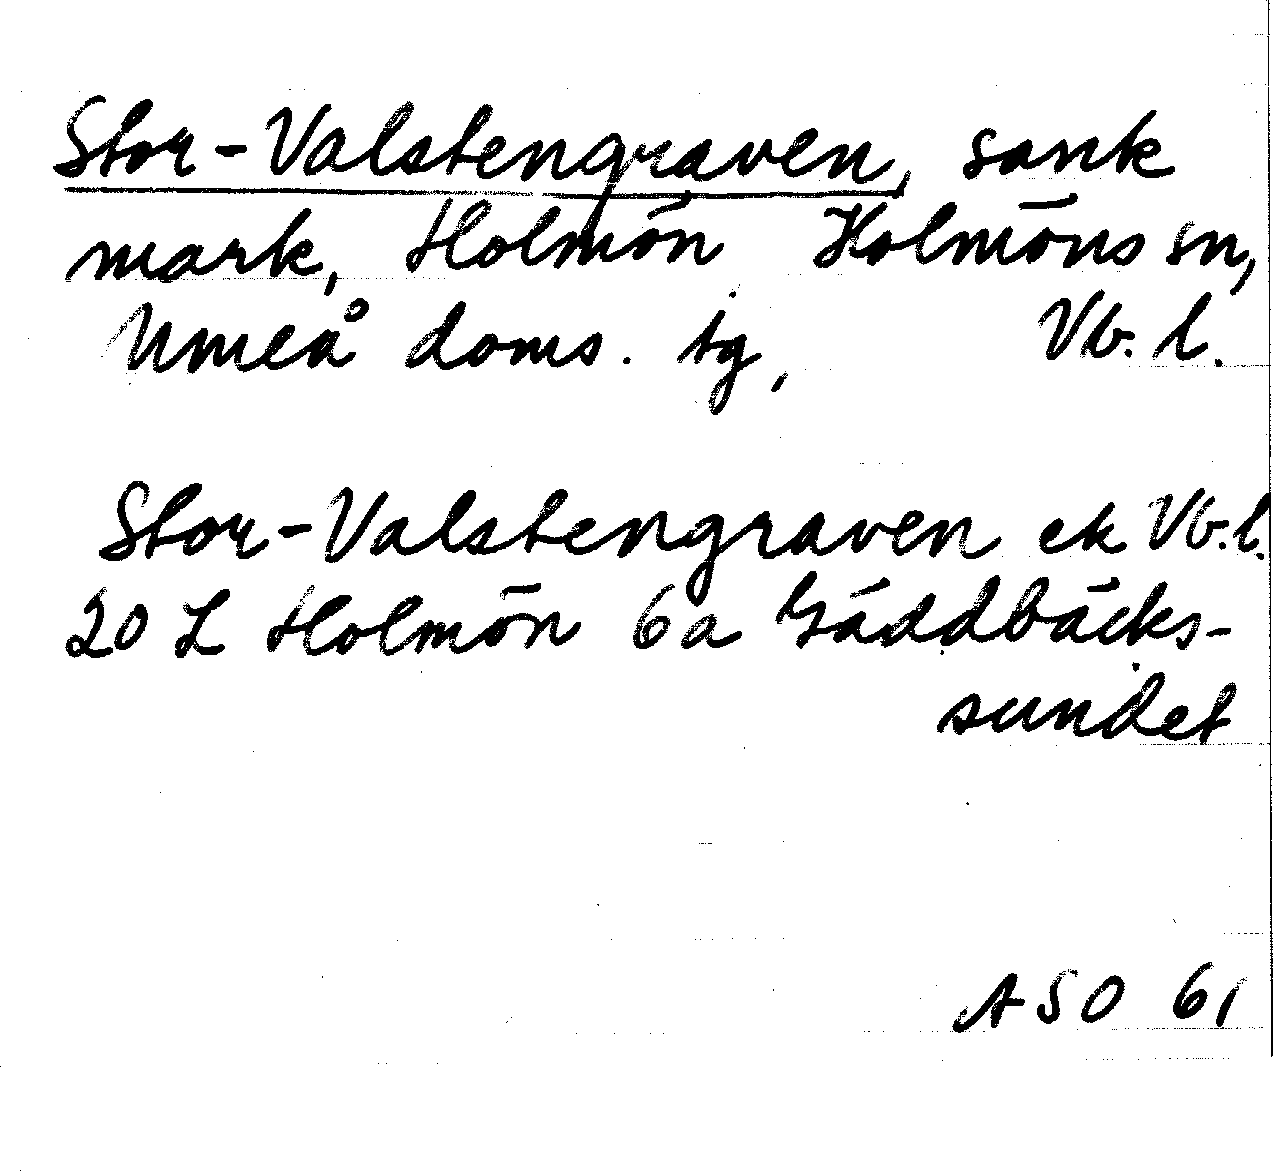 Stor-Valstengraven, sank
mark, Holmön Holmöns sn,
Umeå doms. tg, Vb. l.
Stor-Valstengraven ek Vb. l.
20 L Holmön 6a Gäddbäcks-
sundet
ASO 61